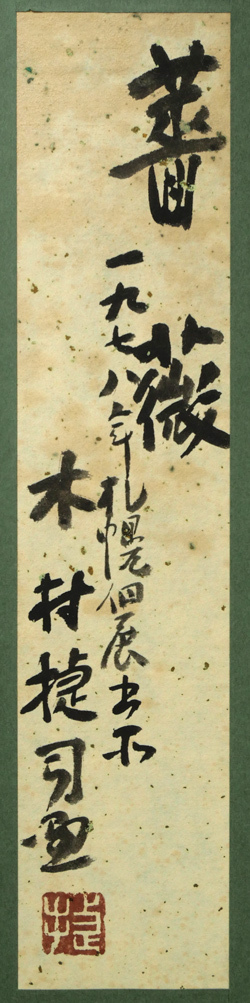 薔薇
一九七八年札幌個展出品
木村捷司画
捷